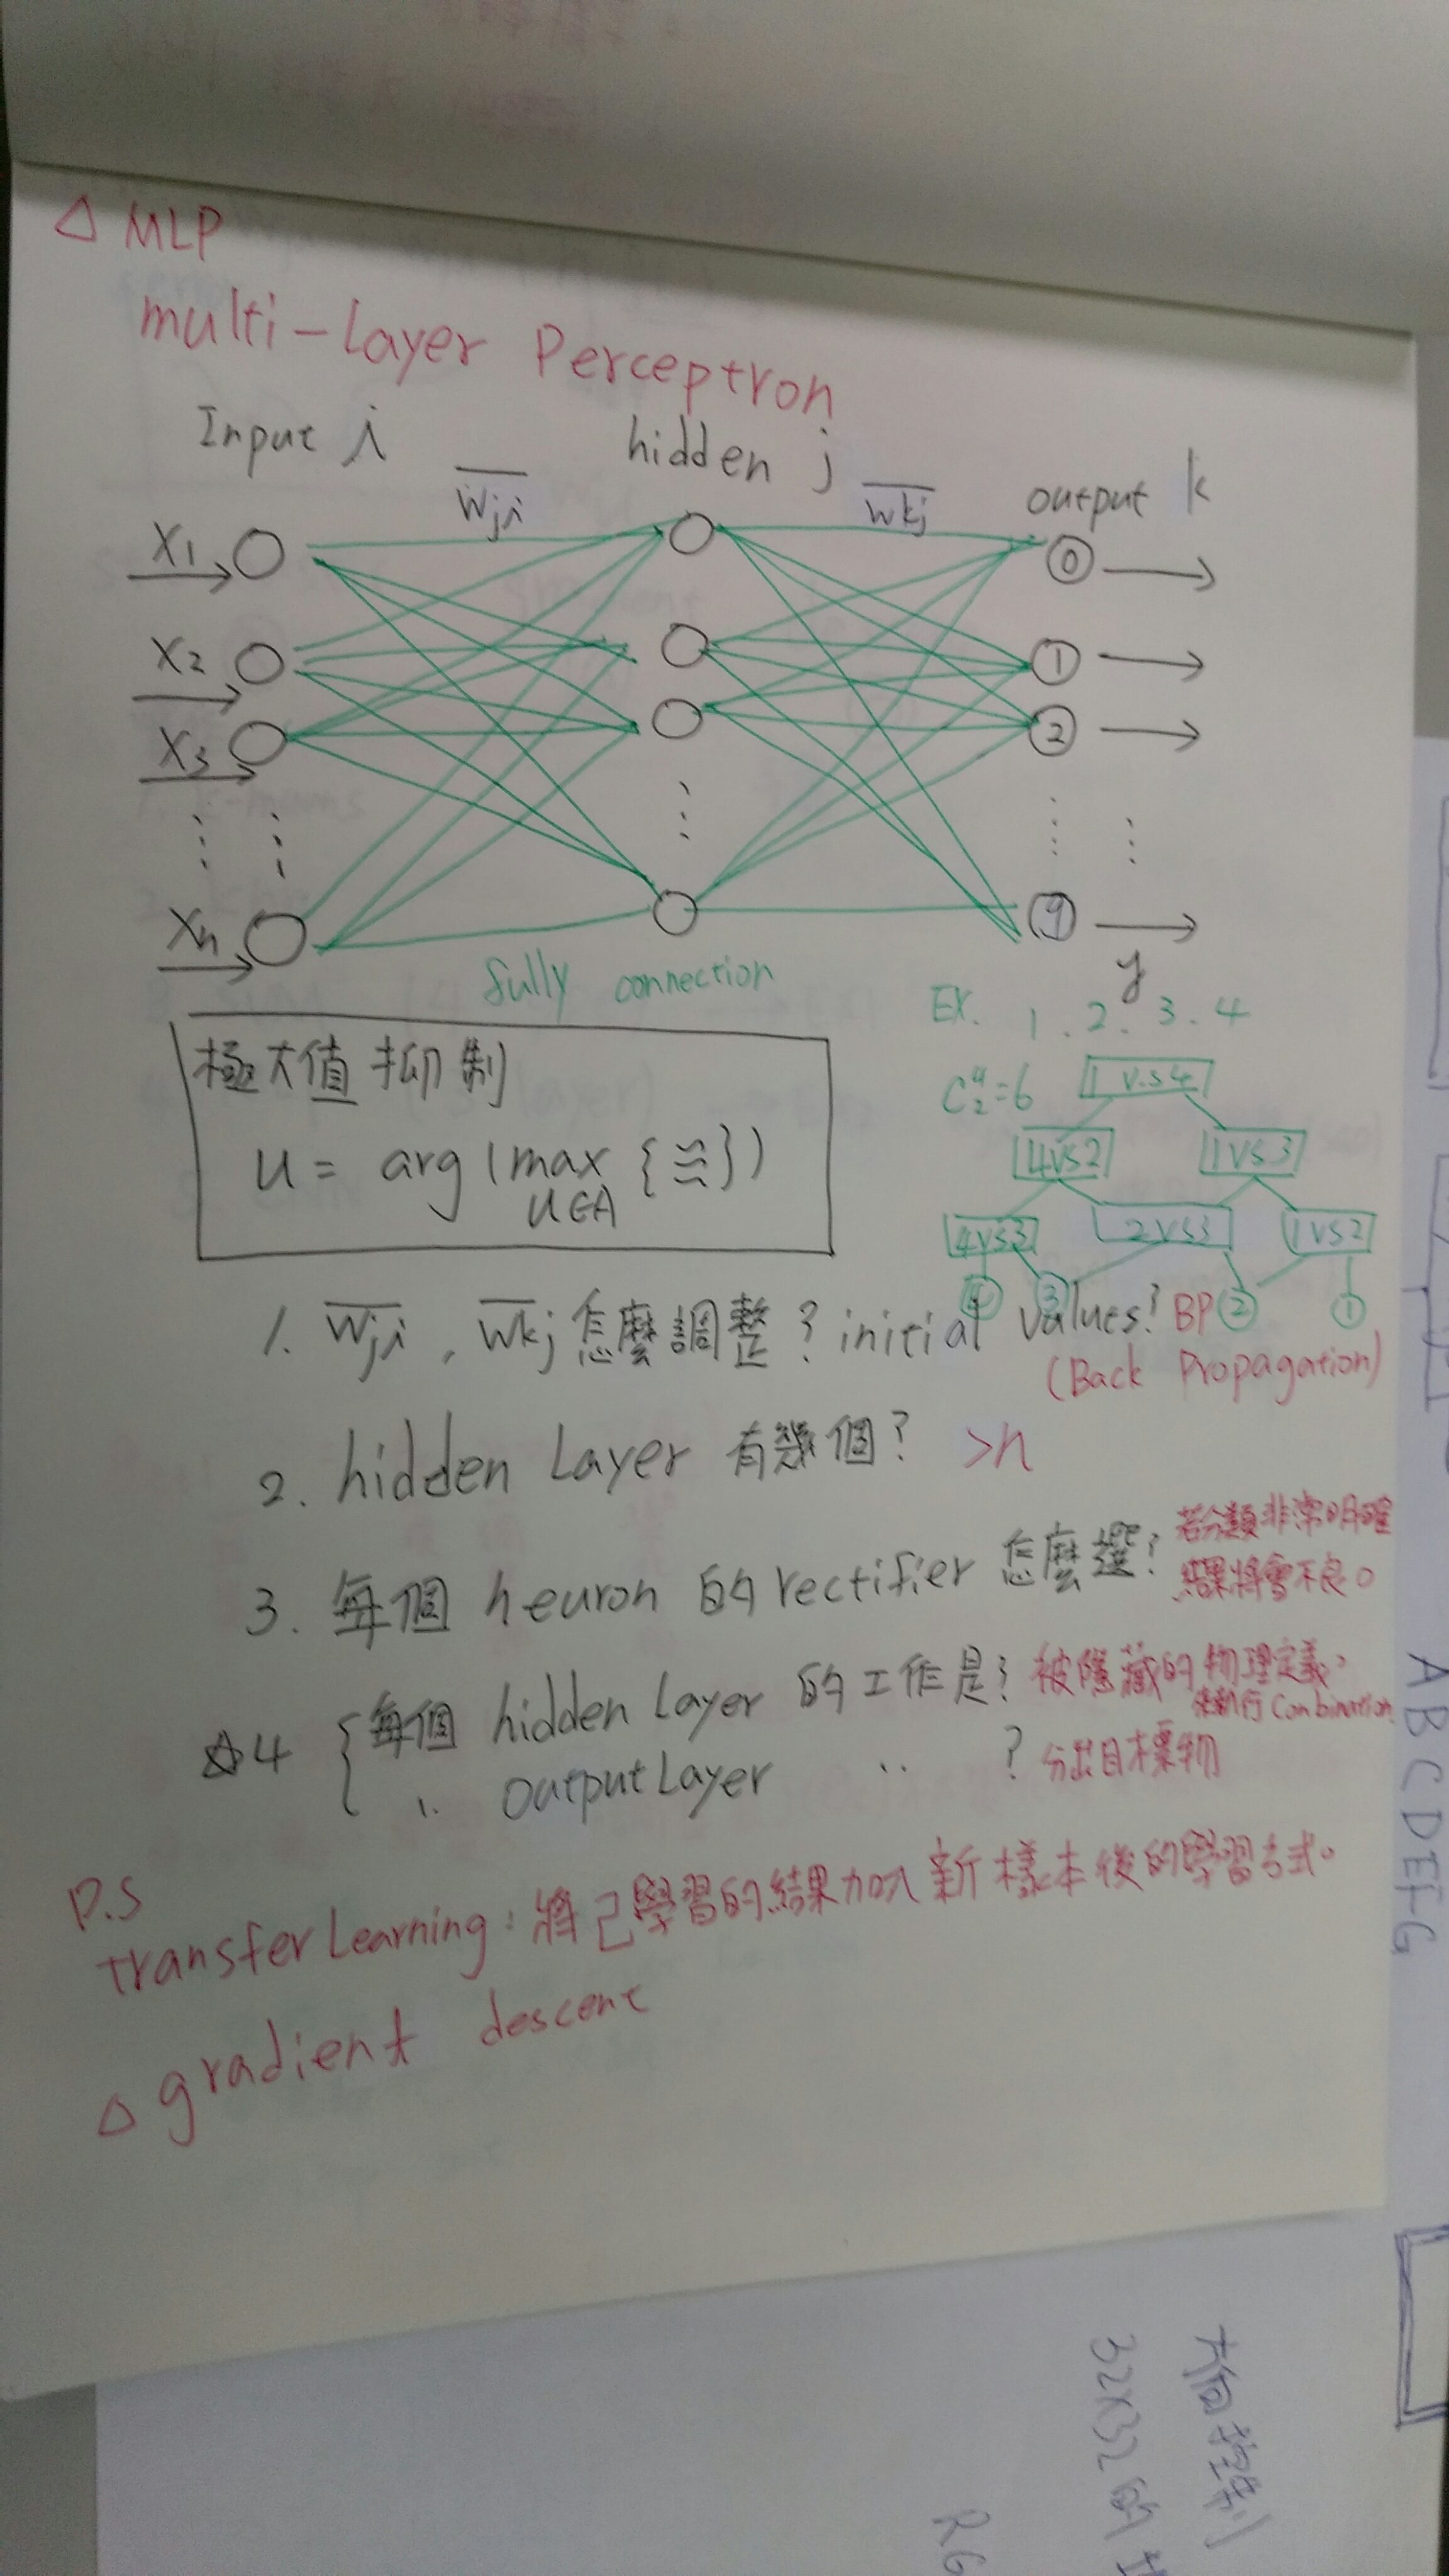 △ MLP
multi-Layer Perceptron
Input i
hidden j
output k
Wji
Wkj
X1
X2
X3
Xn
0
1
2
9
y
fully connection
極大值抑制
u = arg (max { })
u∈A
EX. 1. 2. 3. 4
C42=6
1 v.s 4
4vs2
1vs3
4vs3
2vs3
1vs2
4
3
2
1
1. Wji, Wkj 怎麼調整? initial values? BP
(Back Propagation)
2. hidden Layer 有幾個? >n
3. 每個 neuron 的 rectifier 怎麼選? 若分類非常明確
結果將會不良。
☆4 { 每個 hidden Layer 的工作是? 被隱藏的物理定義,
執行 Combination
.. output Layer .. ? 分出目標物
P.S
transfer Learning: 將已學習的結果加入新樣本後的學習方式。
△ gradient descent
A B C D E F G
32X32
RG